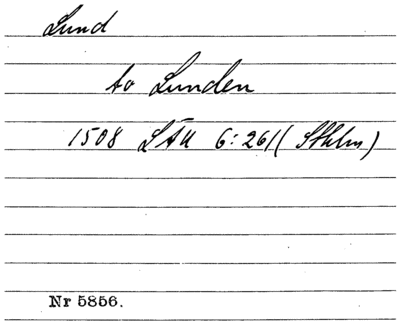 Lund
to Lunden
1508 SÄU 6:261 (Sthlm)
Nr 5856.